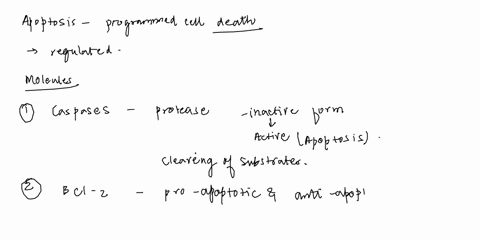 Apoptosis - programmed cell death
→ regulated.
Molecules
① Caspases - protease - inactive form
↓
Active (Apoptosis).
Clearing of substrates.
② Bcl-2 - pro-apoptotic & anti-apopl